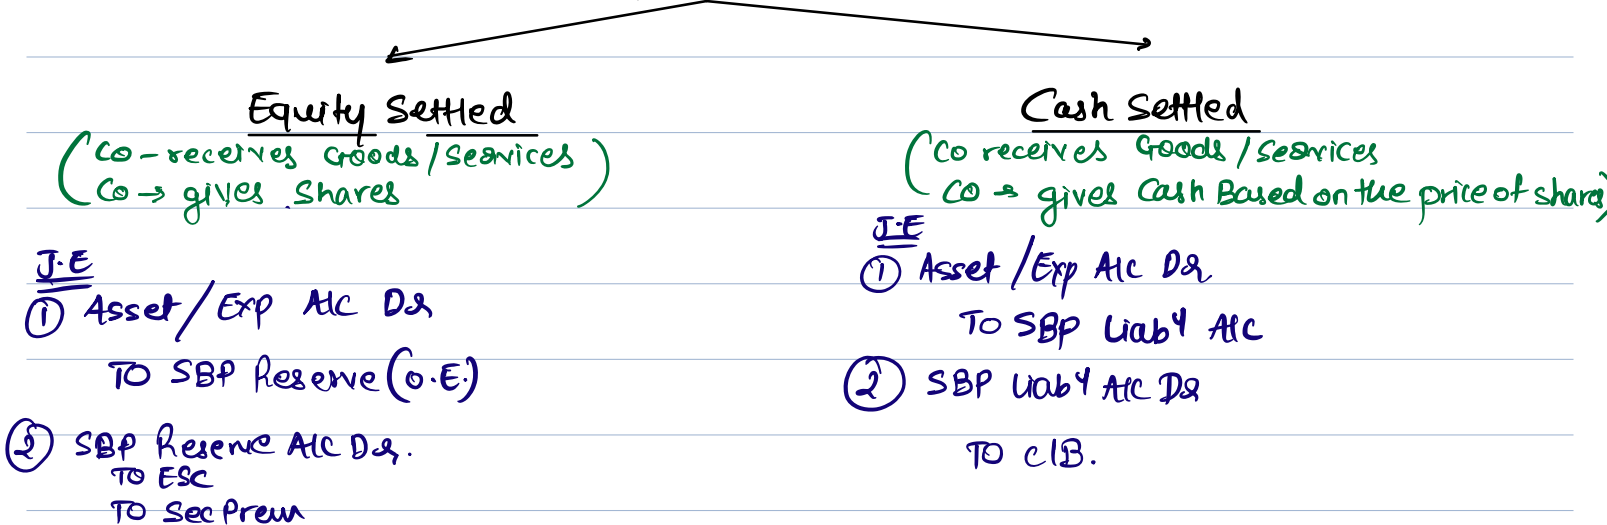 Equity Settled
(Co - receives Goods/Services
Co → gives Shares)
J.E
① Asset/Exp A/c Dr
To SBP Reserve (O.E.)
② SBP Reserve A/c Dr.
To ESC
To Sec Prem
Cash Settled
(Co receives Goods/Services
Co → gives Cash Based on the price of shares)
J.E
① Asset/Exp A/c Dr
To SBP Liaby A/c
② SBP Liaby A/c Dr
To C/B.